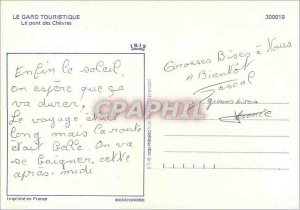 LE GARD TOURISTIQUE
Le pont des Chèvres
300019
IRIS
Enfin le soleil,
on espere que ça
va durer.
Le voyage était
long mais la route
était Belle. On va
se Baigner cette
après-midi
Grosses Bises à Vous
A Bientôt
Pascal
France
CPARAMA.COM
Imprimé en France
MEXICHROME